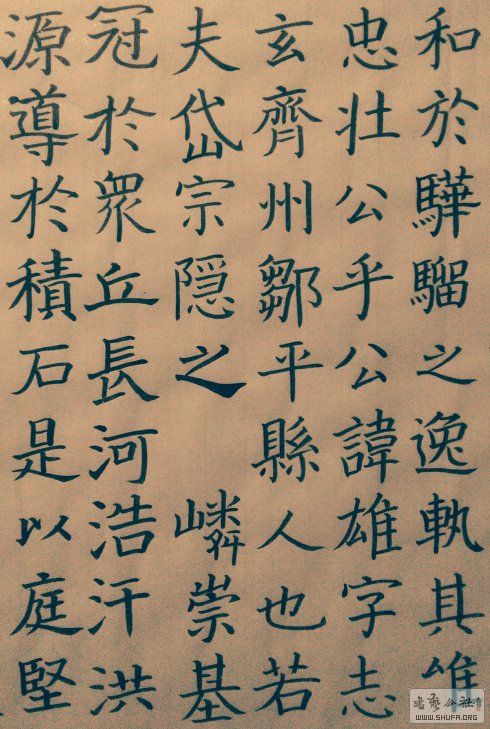 和於驊騮之逸軌其唯
忠壯公乎公諱雄字志
玄齊州鄒平縣人也若
夫岱宗隠之嶙崇基
冠於衆丘長河浩汗洪
源導於積石是以庭堅
WWW.SHUFA.ORG